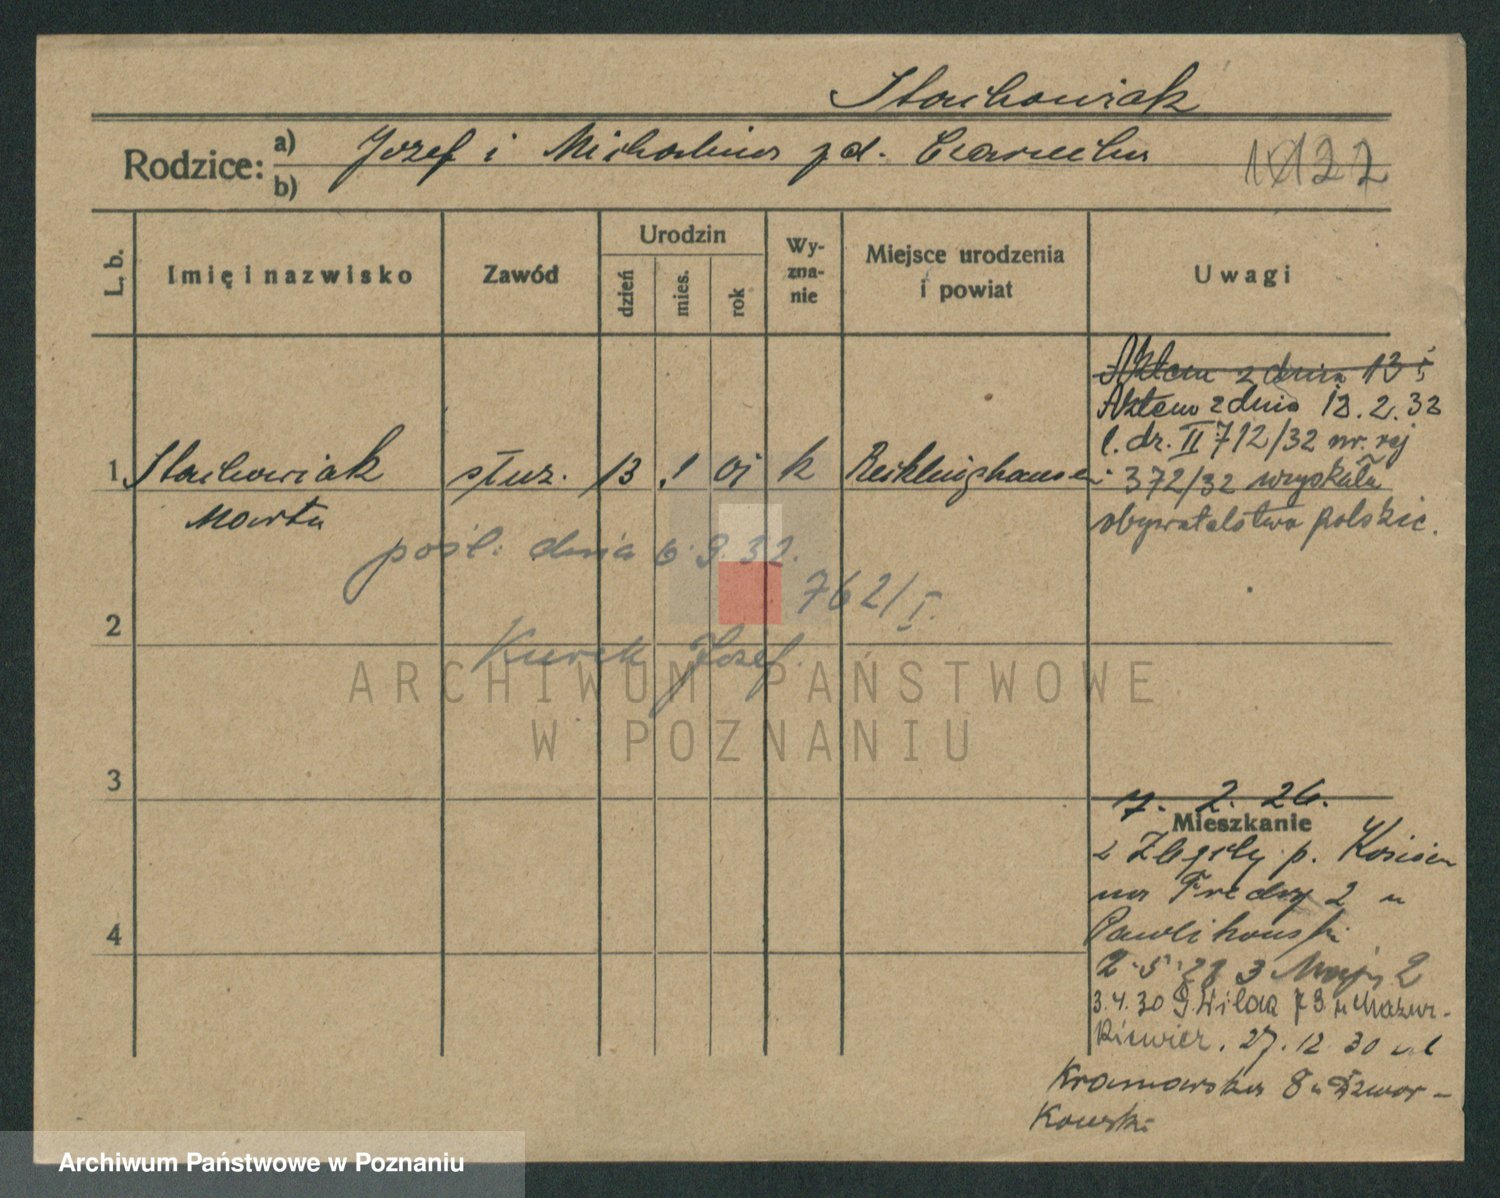 Stachowiak
Rodzice: a) b)
Józef i Michalina zd. Czarnecka
1922
L. b.
Imię i nazwisko
Zawód
Urodzin
dzień
mies.
rok
Wyznanie
Miejsce urodzenia i powiat
Uwagi
Aktem z dnia 13
Aktem z dnia 12.2.32
l. dr. II 712/32 nr. rej
372/32 uzyskała
obywatelstwo polskie.
1 Stachowiak służ. 13 1 01 k Recklinghausen
Marta
pośl. dnia 6.9.32.
762/I.
2
Kurek Józef.
3
7. 2. 26.
Mieszkanie
z Zbąszły p. Kościan
na Fredry 2 u
Pawlikowski
4
2.5.28 3 Maja 2
3.4.30 G. Wilda 78 u Mazur-
kiewicz. 27.12 30 ul
Kramarska 8 u Dzwor-
kowski
ARCHIWUM PAŃSTWOWE
W POZNANIU
Archiwum Państwowe w Poznaniu